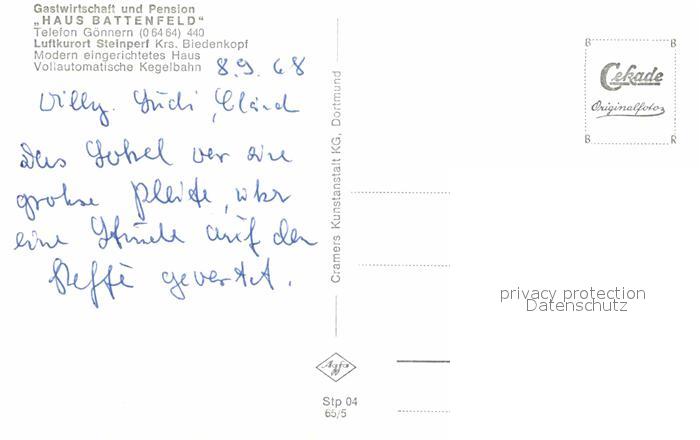 Gastwirtschaft und Pension
„HAUS BATTENFELD"
Telefon Gönnern (0 64 64) 440
Luftkurort Steinperf Krs. Biedenkopf
Modern eingerichtetes Haus
Vollautomatische Kegelbahn
8.9.68
Willy
Das Lokal war eine
grohse Pleite, wir
eine Stunde auf den
Kaffe gewartet.
Cramers Kunstanstalt KG, Dortmund
Agfa
Stp 04
65/5
B R
Cekade
Originalfoto
B R
privacy protection
Datenschutz